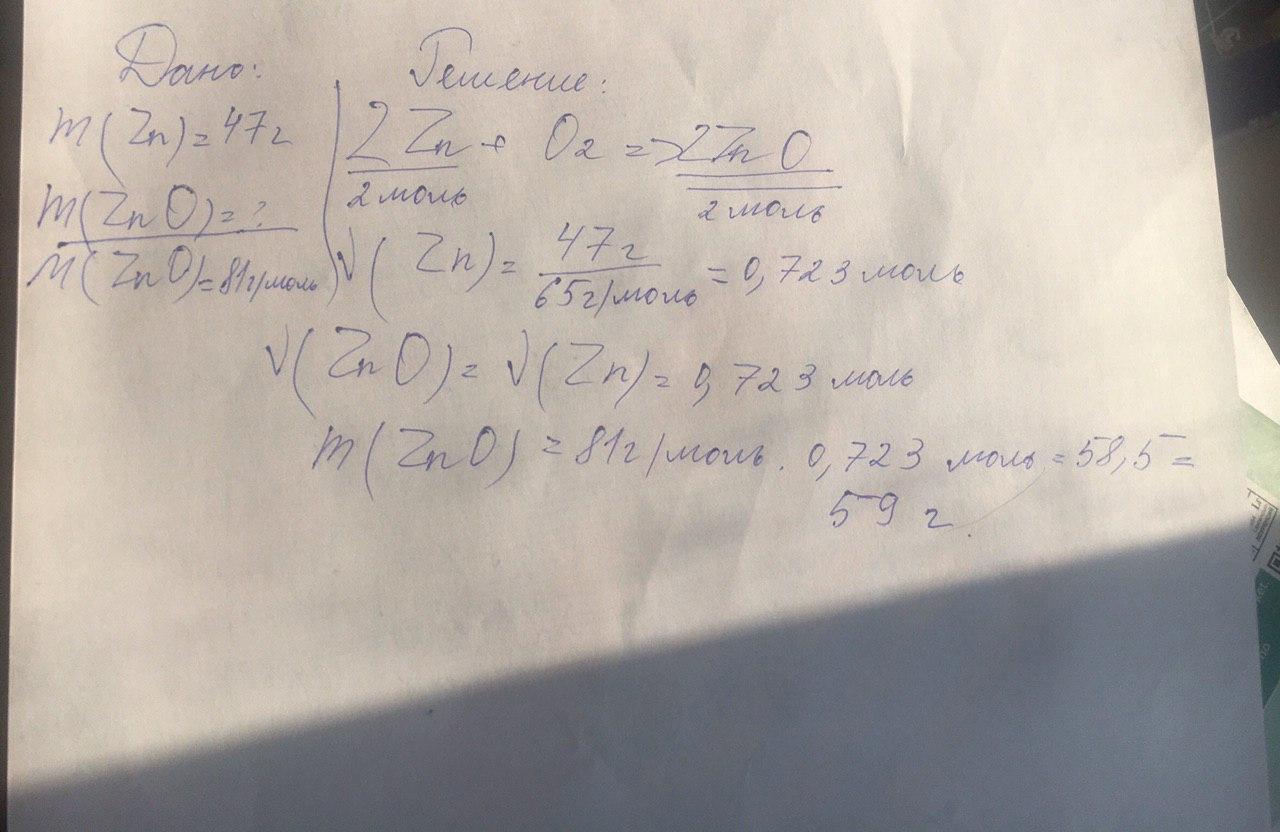 Дано:
m(Zn)=47г
m(ZnO)=?
M(ZnO)=81г/моль
Решение:
2Zn + O2 => 2ZnO
2 моль 2 моль
ν(Zn) = 47г / 65г/моль = 0,723 моль
ν(ZnO) = ν(Zn) = 0,723 моль
m(ZnO) = 81г/моль · 0,723 моль = 58,5 =
59 г.